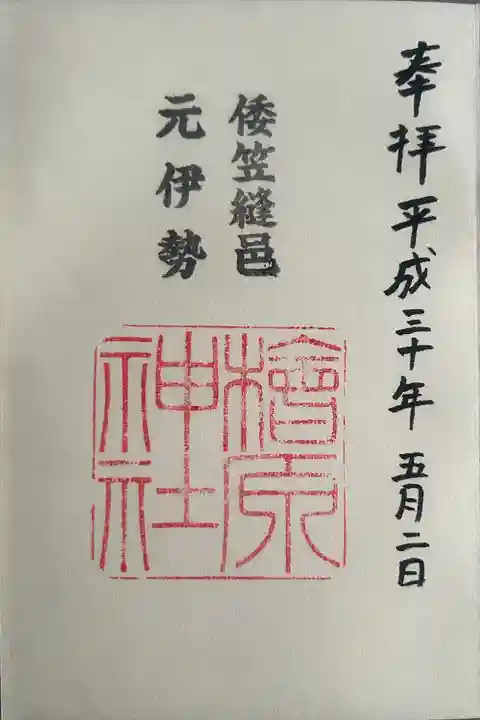 奉拝 平成三十年 五月二日
倭笠縫邑
元伊勢
檜原神社